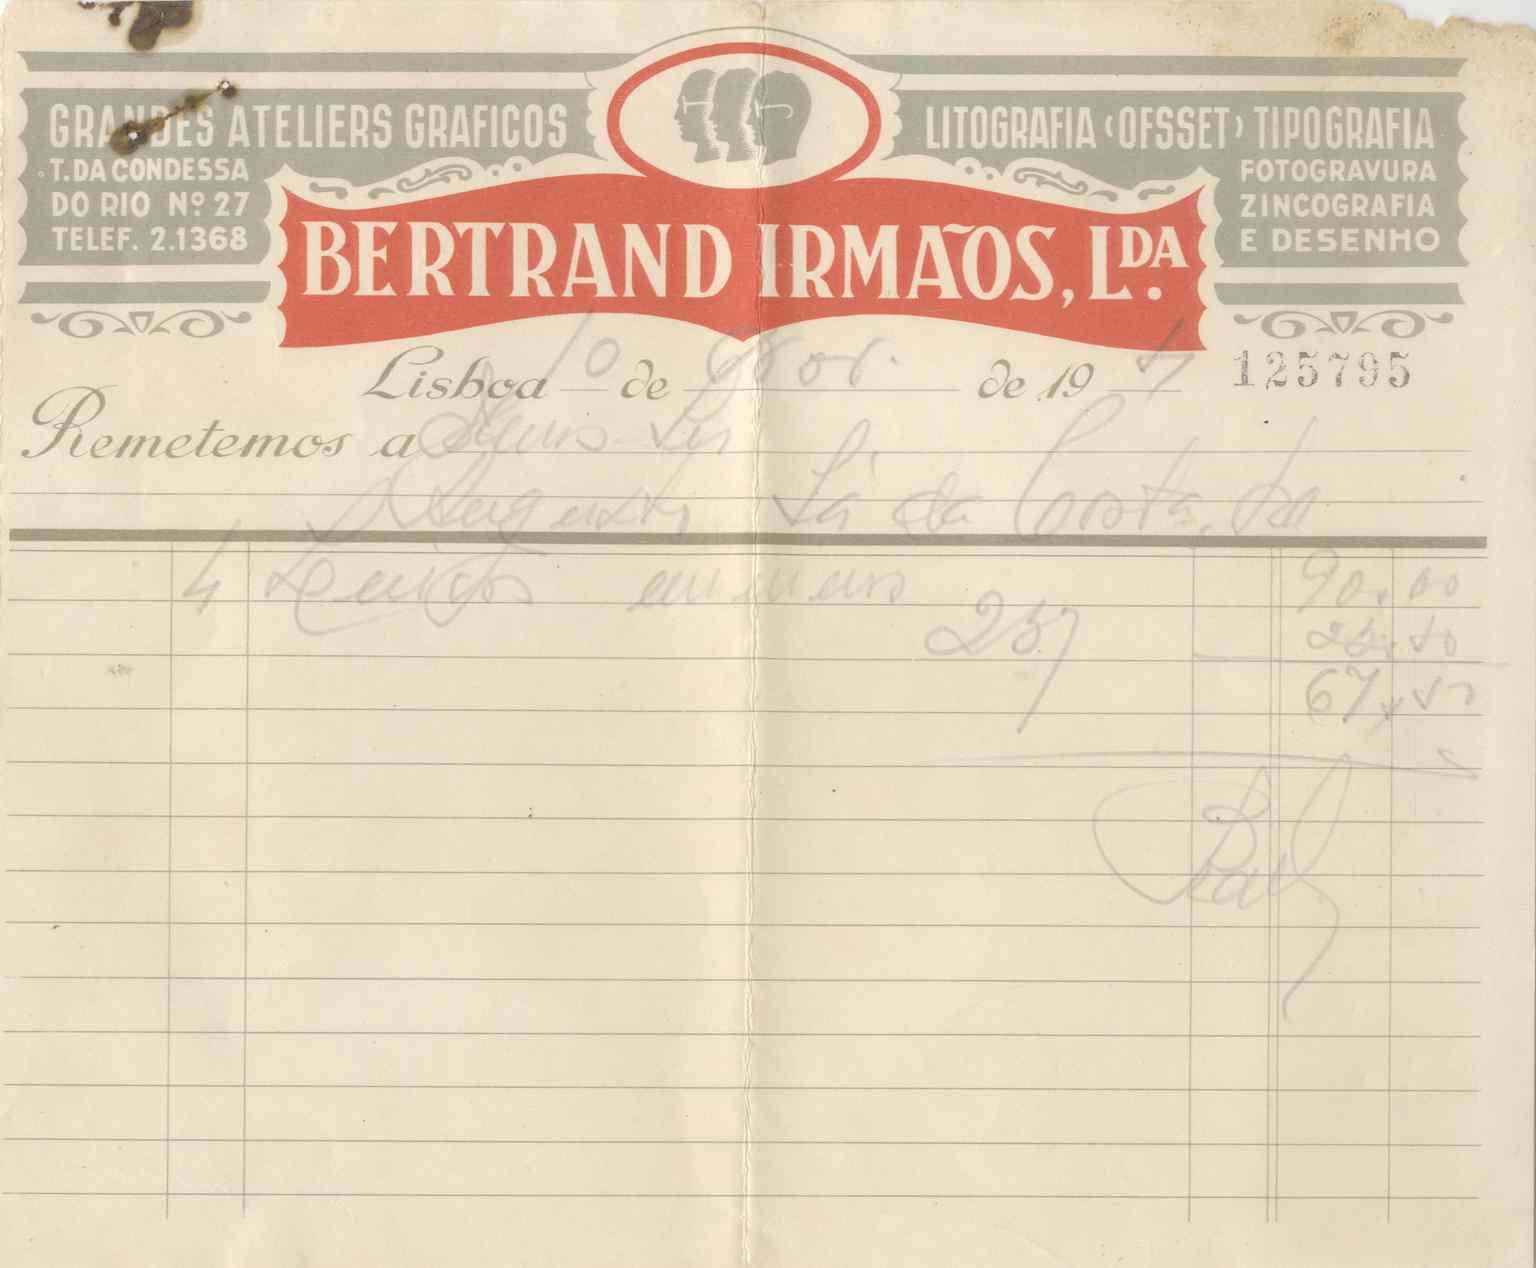 GRANDES ATELIERS GRAFICOS
T. DA CONDESSA
DO RIO Nº 27
TELEF. 2.1368
LITOGRAFIA (OFSSET) TIPOGRAFIA
FOTOGRAVURA
ZINCOGRAFIA
E DESENHO
BERTRAND IRMÃOS, LDA.
Lisboa 10 de de 19
125795
Remetemos a
Augusto Sá da Costa, Lda
4 90.00
25%
67,50